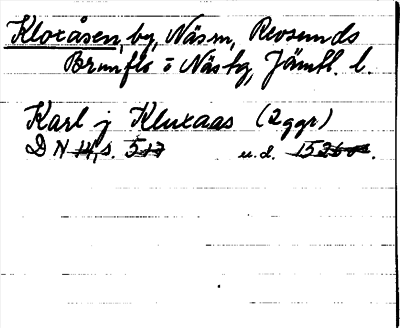 Kloxåsen, by, Näs sn, Revsunds
Brunflo o Näs tg, Jämtl. l.
Karl j Kluxaas (2 ggr)
DN 14, s. 517 u.d. 1526